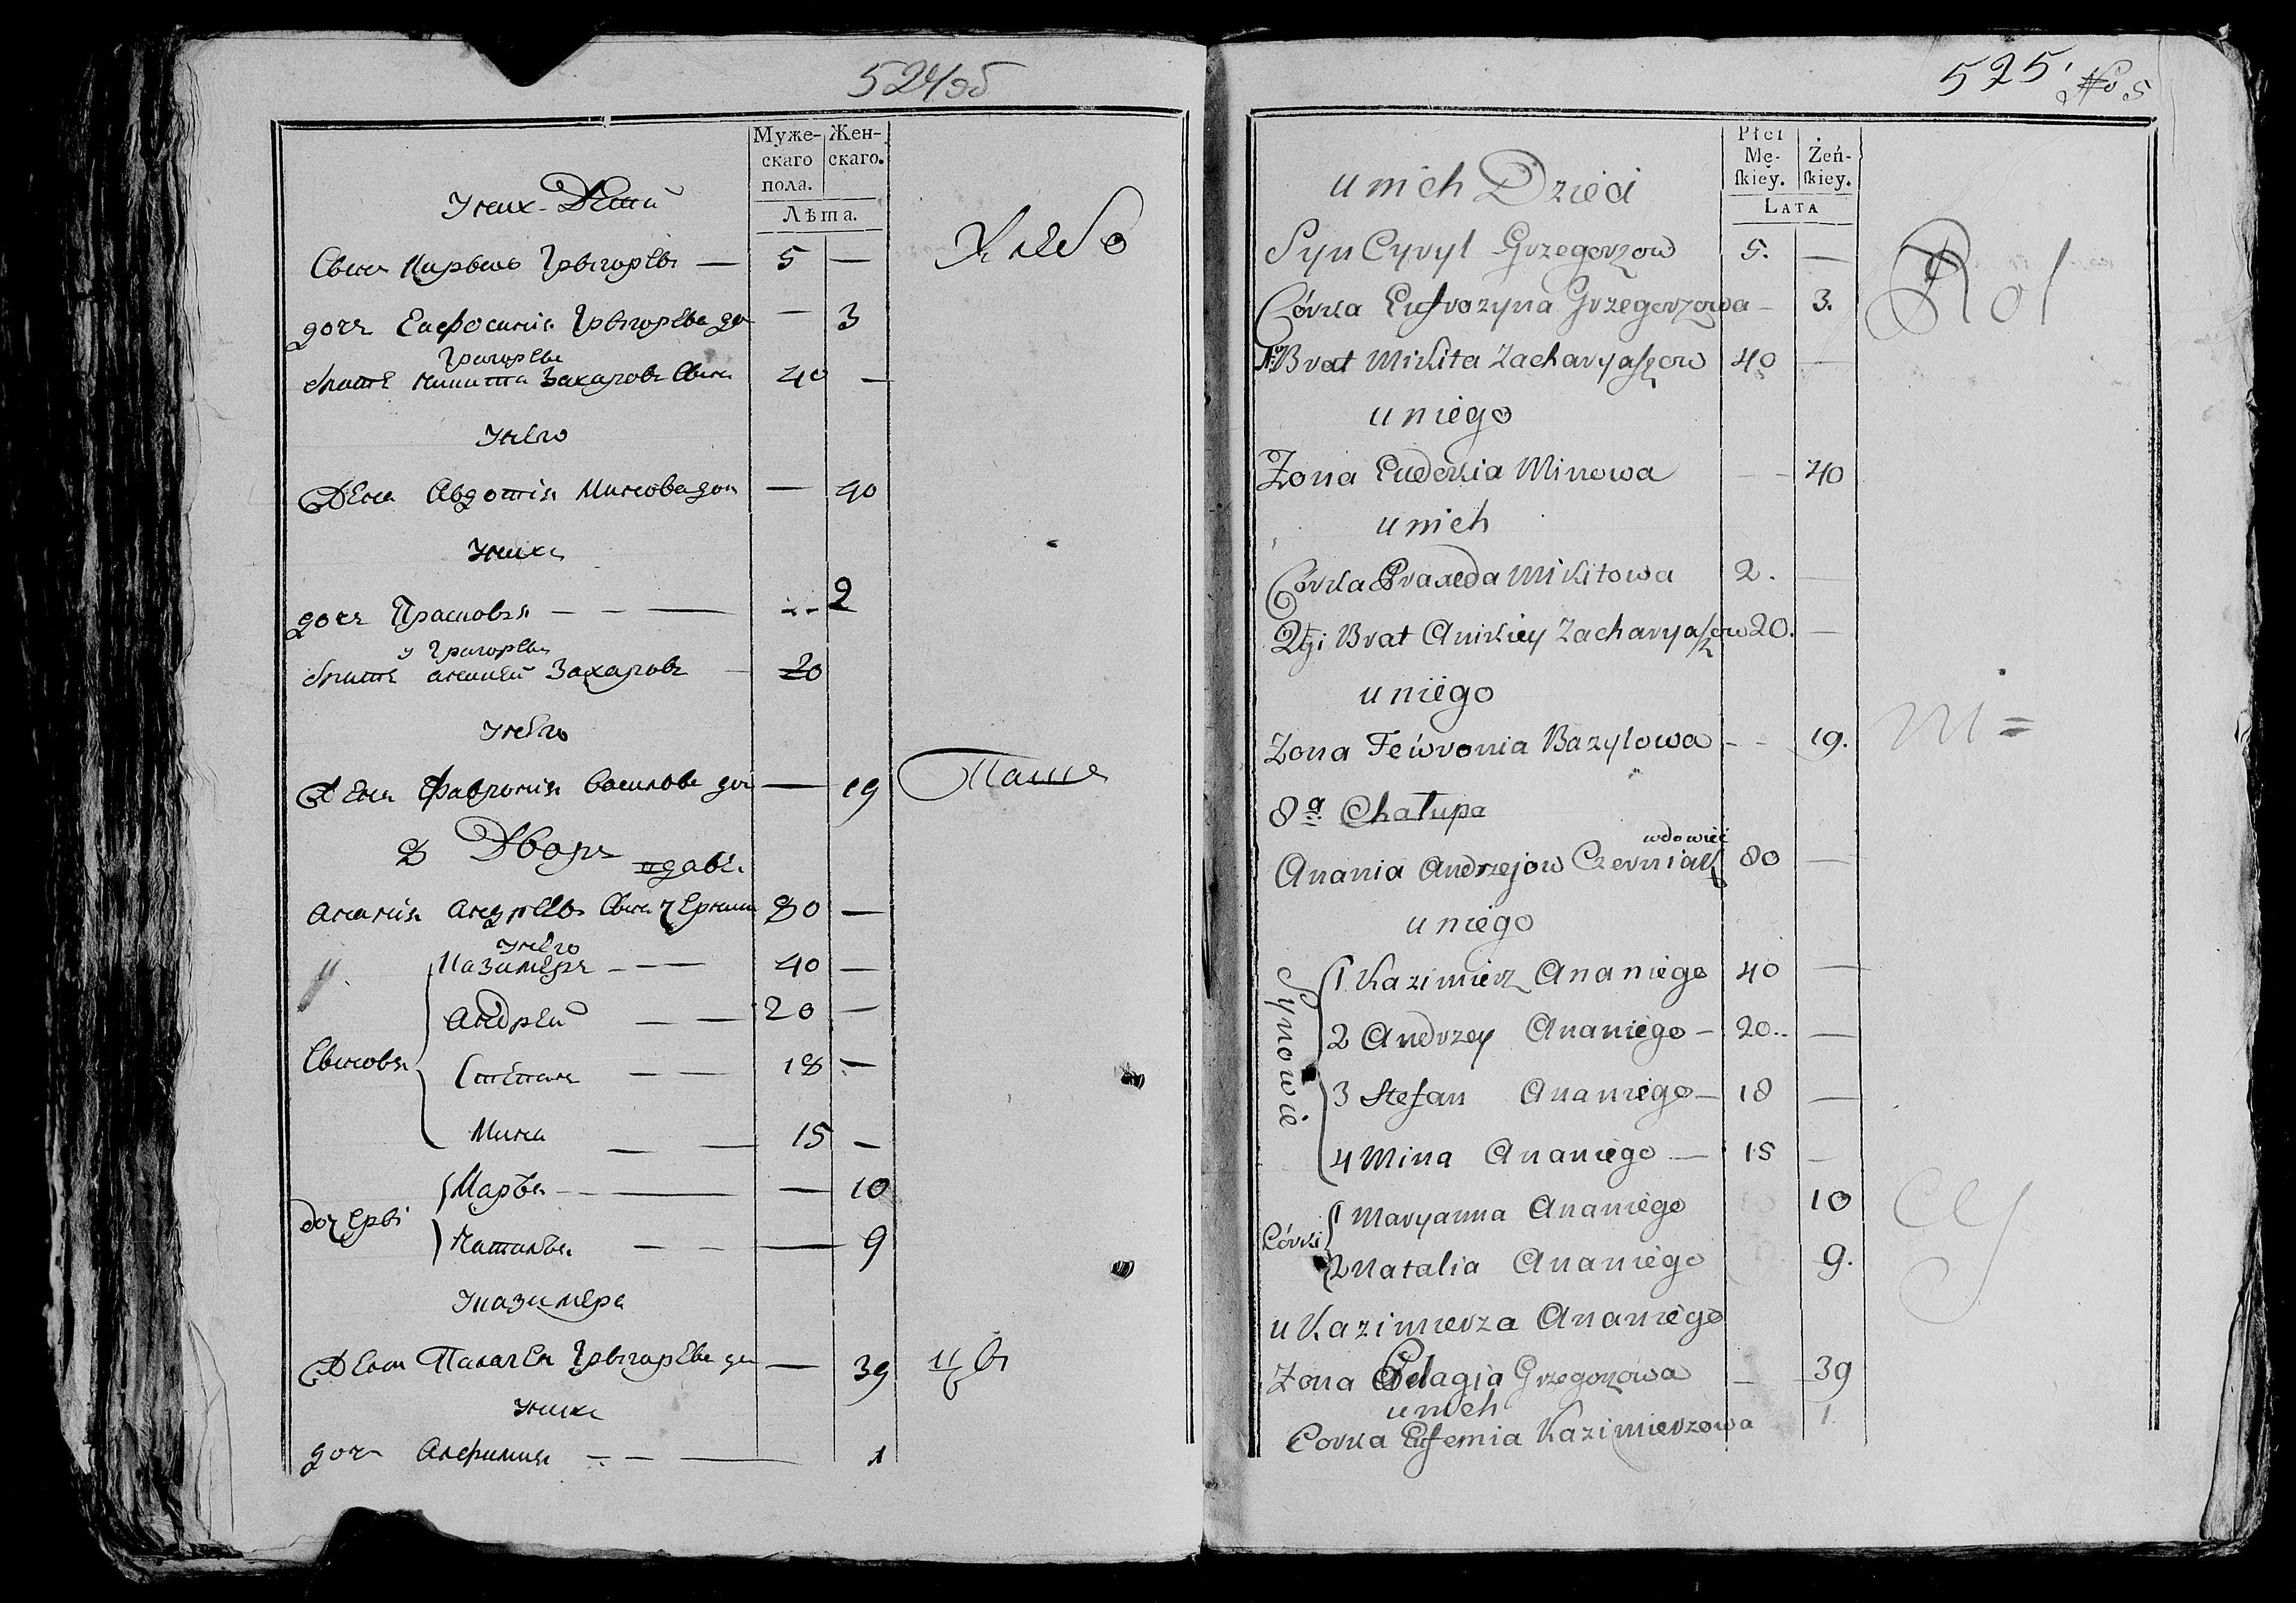 524 об
Муже-
скаго
пола.
Жен-
скаго.
Лѣта.
У них Дети
Хлебо
Сынъ Кирыло Грыгорьевъ — 5 —
дочь Евфосинія Грыгорьева до — 3
Григорьева
братъ Никита Захаровъ Сынъ 40 —
У него
Жена Авдотія Минова дочь — 40
У нихъ
дочь Прасковья — — — 2
у Григорьева
братъ Аникей Захаровъ — 20
У него
Жена Февронія Василова доч — 19
Паше
8 Дворъ
вдовъ
Ананія Андреевъ Сынъ Черняк 80 —
У него
Казимеръ — — 40 —
Андрей — — 20 —
Сыновья
Степанъ — — 18 —
Мина — — 15 —
Марья — — — 10
дочери
Наталья — — — 9
У Казимера
Жена Палагея Грыгорьева до — 39
цы
У нихъ
дочь Алефимия — — — 1
525. No 5
Płci
Mę-
ſkiey.
Żeń-
ſkiey.
LATA
u nich Dzieci
Rol
Syn Cyryl Grzegorzow 5. —
Córka Eufrozyna Grzegorzowa — 3.
1. Brat Mikita Zacharyaszow 40 —
u niego
Zona Eudokia Minowa — 40
u nich
Córka Praxeda Mikitowa 2. —
2gi Brat Anikiey Zacharyaszow 20. —
u niego
Zona Fewronia Bazylowa - - 19.
ni =
8a Chałupa
wdowiec
Anania Andrzejow Czerniak 80 —
u niego
Synowie
1 Kazimierz Ananiego 40 —
2 Andrzey Ananiego — 20.. —
3 Stefan Ananiego — 18 —
4 Mina Ananiego — 15 —
Córki
1 Maryanna Ananiego 10
cy
2 Natalia Ananiego 9.
u Kazimierza Ananiego
Zona Pelagia Grzegorzowa — 39
u nich
Corka Eufemia Kazimierzowa 1.